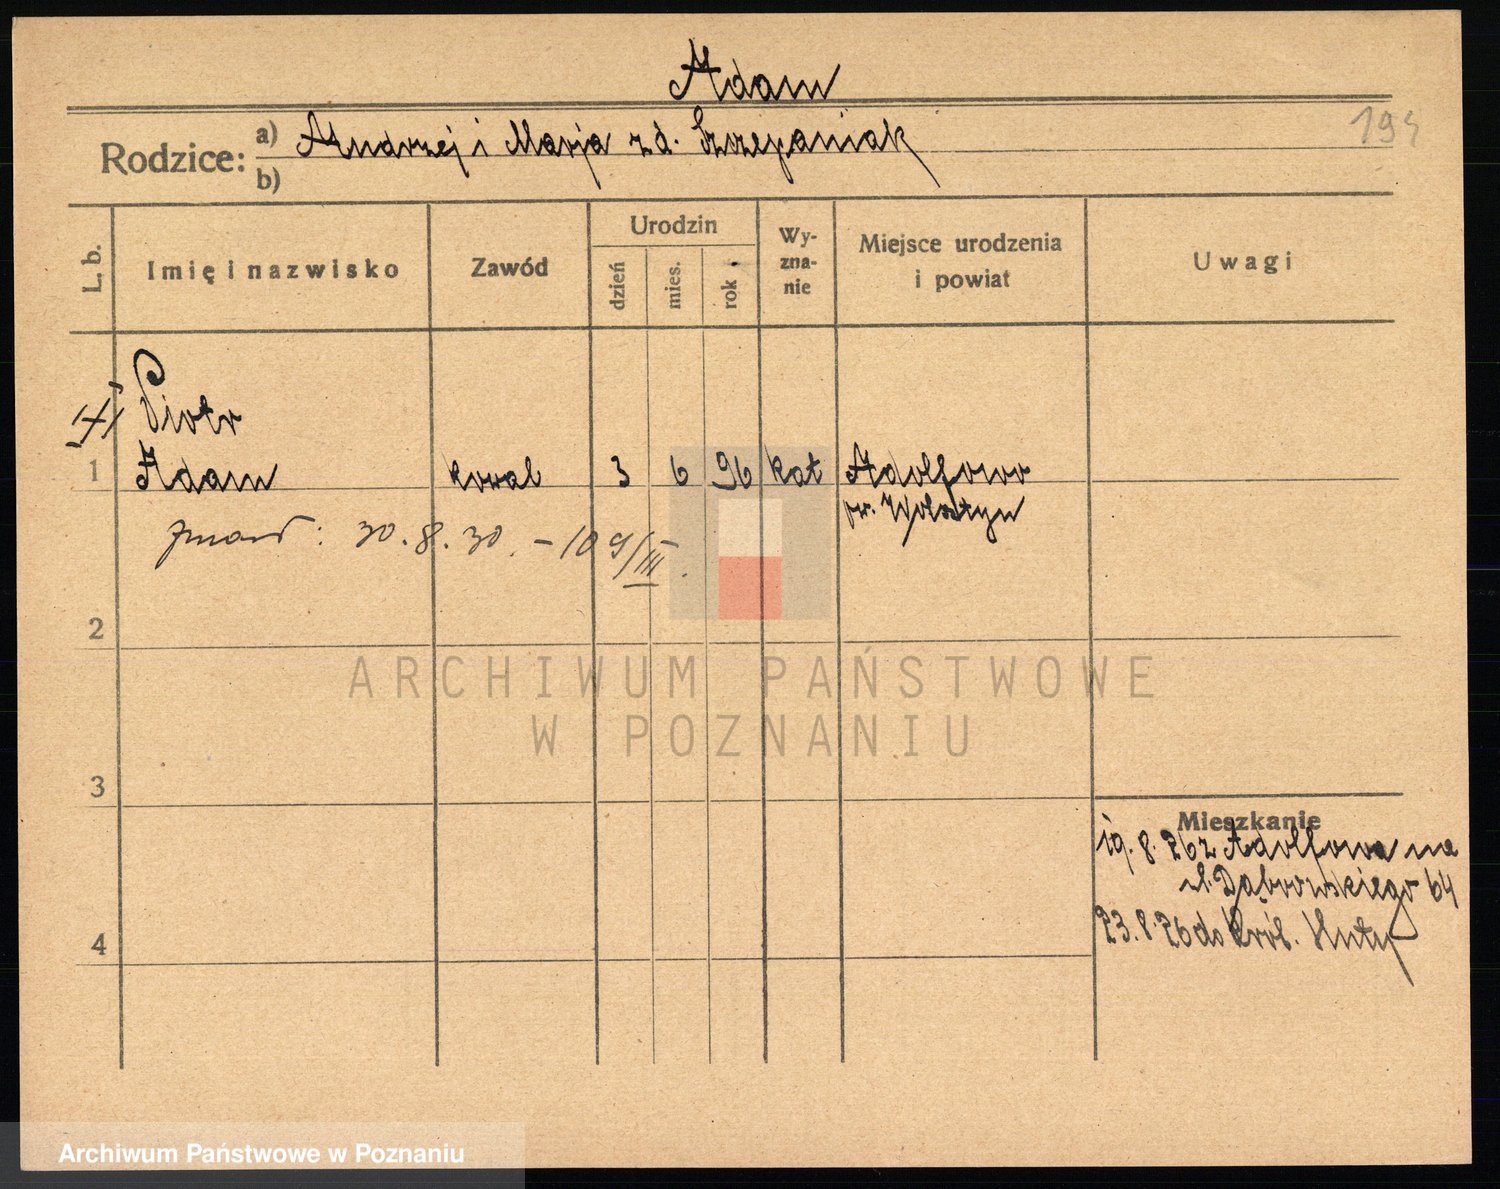 Adam
194
Rodzice: a) Andrzej i Marja z d. Szczepaniak
b)
L. b.
Imię i nazwisko
Zawód
Urodzin
dzień
mies.
rok
Wy-
zna-
nie
Miejsce urodzenia
i powiat
Uwagi
Piotr
1 Adam kowal 3 6 96 kat Adolfowo
pw. Wolsztyn
zmarł: 30.8.30. – 109/III.
2
3
4
Mieszkanie
19.8.26 z Adolfowa na
ul. Dąbrowskiego 64
23.8.26 do Król. Huty
ARCHIWUM PAŃSTWOWE
W POZNANIU
Archiwum Państwowe w Poznaniu